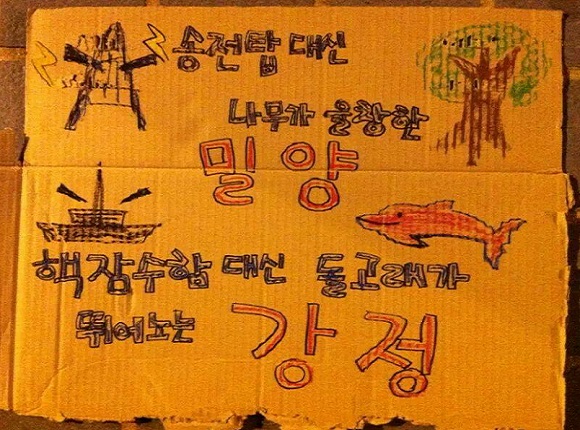 송전탑 대신
나무가 울창한
밀양
핵잠수함 대신 돌고래가
뛰어노는
강정